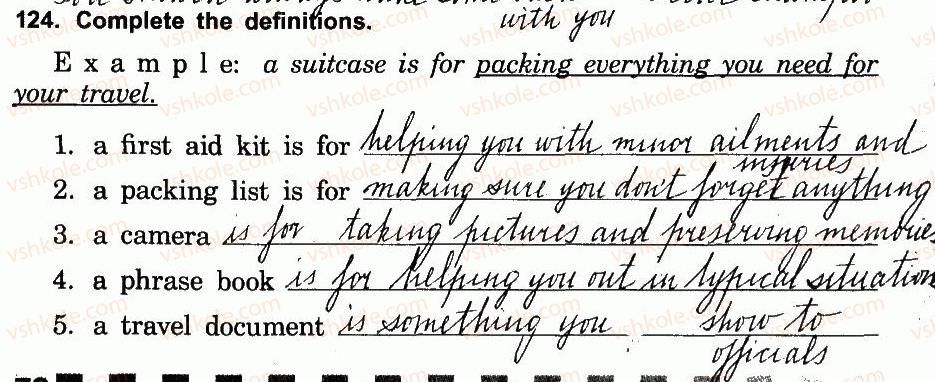 with you
124. Complete the definitions.
Example: a suitcase is for packing everything you need for
your travel.
1. a first aid kit is for helping you with minor ailments and
injuries
2. a packing list is for making sure you don't forget anything
3. a camera is for taking pictures and preserving memories
4. a phrase book is for helping you out in typical situation
5. a travel document is something you show to
officials